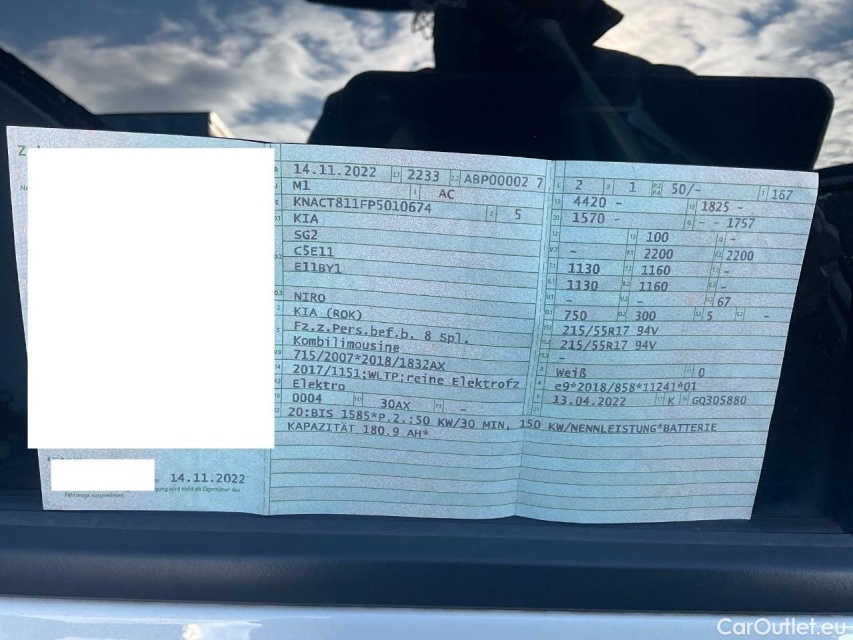 Z
14.11.2022 2233 ABP00002 7
M1 AC
KNACT811FP5010674 5
KIA
SG2
C5E11
E11BY1
NIRO
KIA (ROK)
Fz.z.Pers.bef.b. 8 Spl.
Kombilimousine
715/2007*2018/1832AX
2017/1151;WLTP;reine Elektrofz
Elektro
0004 30AX -
20:BIS 1585*P.2.:50 KW/30 MIN, 150 KW/NENNLEISTUNG*BATTERIE
KAPAZITÄT 180.9 AH*
2 1 50/- 167
4420 - 1825 -
1570 - - - 1757
100 -
- 2200 2200
1130 1160 -
1130 1160 -
- - 67
750 300 5 -
215/55R17 94V
215/55R17 94V
-
Weiß 0
e9*2018/858*11241*01
13.04.2022 K GQ305880
14.11.2022
gung wird nicht als Eigentümer des
Fahrzeugs ausgewiesen.
CarOutlet.eu